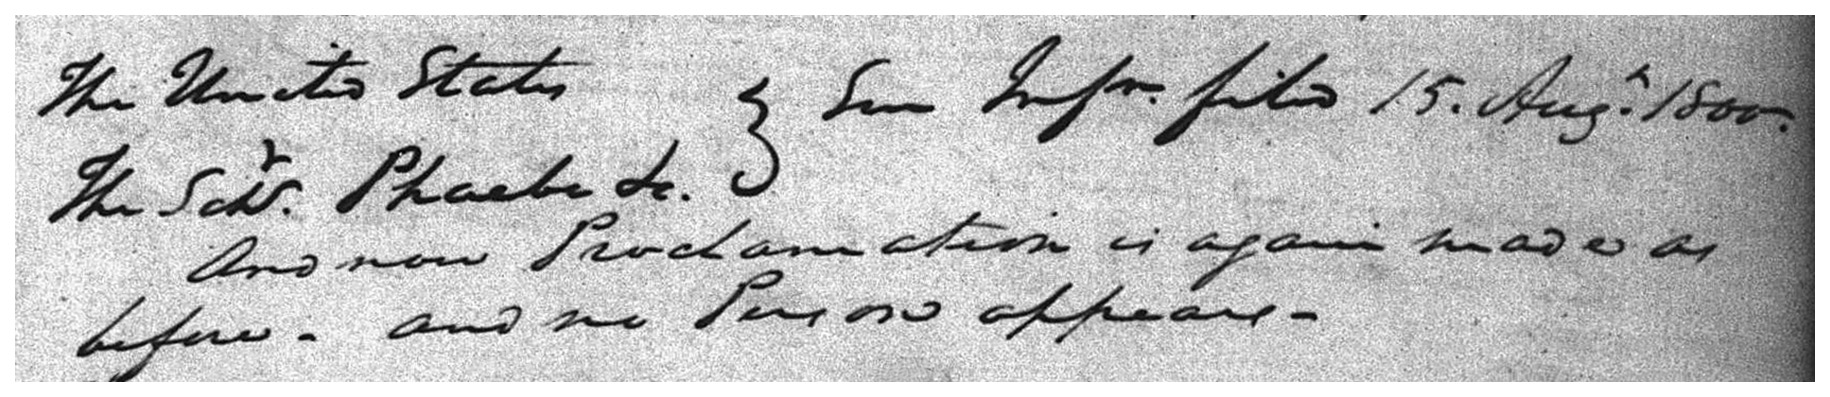 The United States } Sur Infn. filed 15. Augt. 1800.
The Schr. Phaebe &c.
And now Proclamation is again made as
before. and no Person appears-